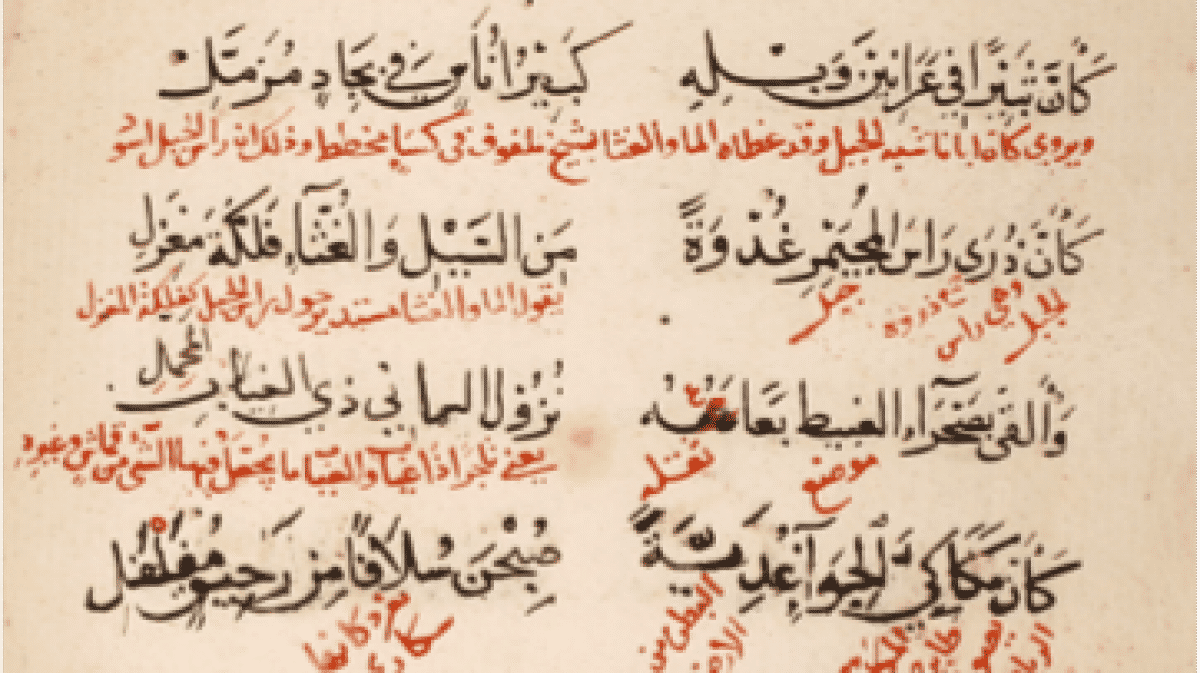 كَأَنَّ ثَبِيْرًا فِي عَرَانِيْنَ وَبْلِهِ كَبِيْرُ أُنَاسٍ فِي بِجَادٍ مُزَمَّلِ
ويروى كان ابانا شبه الجبل وقد غطاه الماء والغثا بشيخ ملفوف في كساء مخطط وذلك ان راس الجبل اسود
كَأَنَّ ذُرَى رَاسِ المُجَيْمِرِ غُدْوَةً مِنَ السَّيْلِ وَالغُثَّاءِ فَلْكَةُ مِغْزَلِ
يقول الماء والغثا مستدير حول راس الجبل كفلكة المغزل
الجبل وهي راس جمع ذروة جبل
وَأَلْقَى بِصَحْرَاءِ الغَبِيطِ بَعَاعَهُ نُزُوْلَ اليماني ذي العياب المحمل
يعني تاجرا ذا عياب والعياب ما يجعل فيها الشي من قماش وغيره
موضع ثقله
كَأَنَّ مَكَاكِيَّ الجِوَآءِ غُدَيَّةً صُبِحْنَ سُلَافًا مِنْ رَحِيْقٍ مُفَلْفَلِ
البطن من